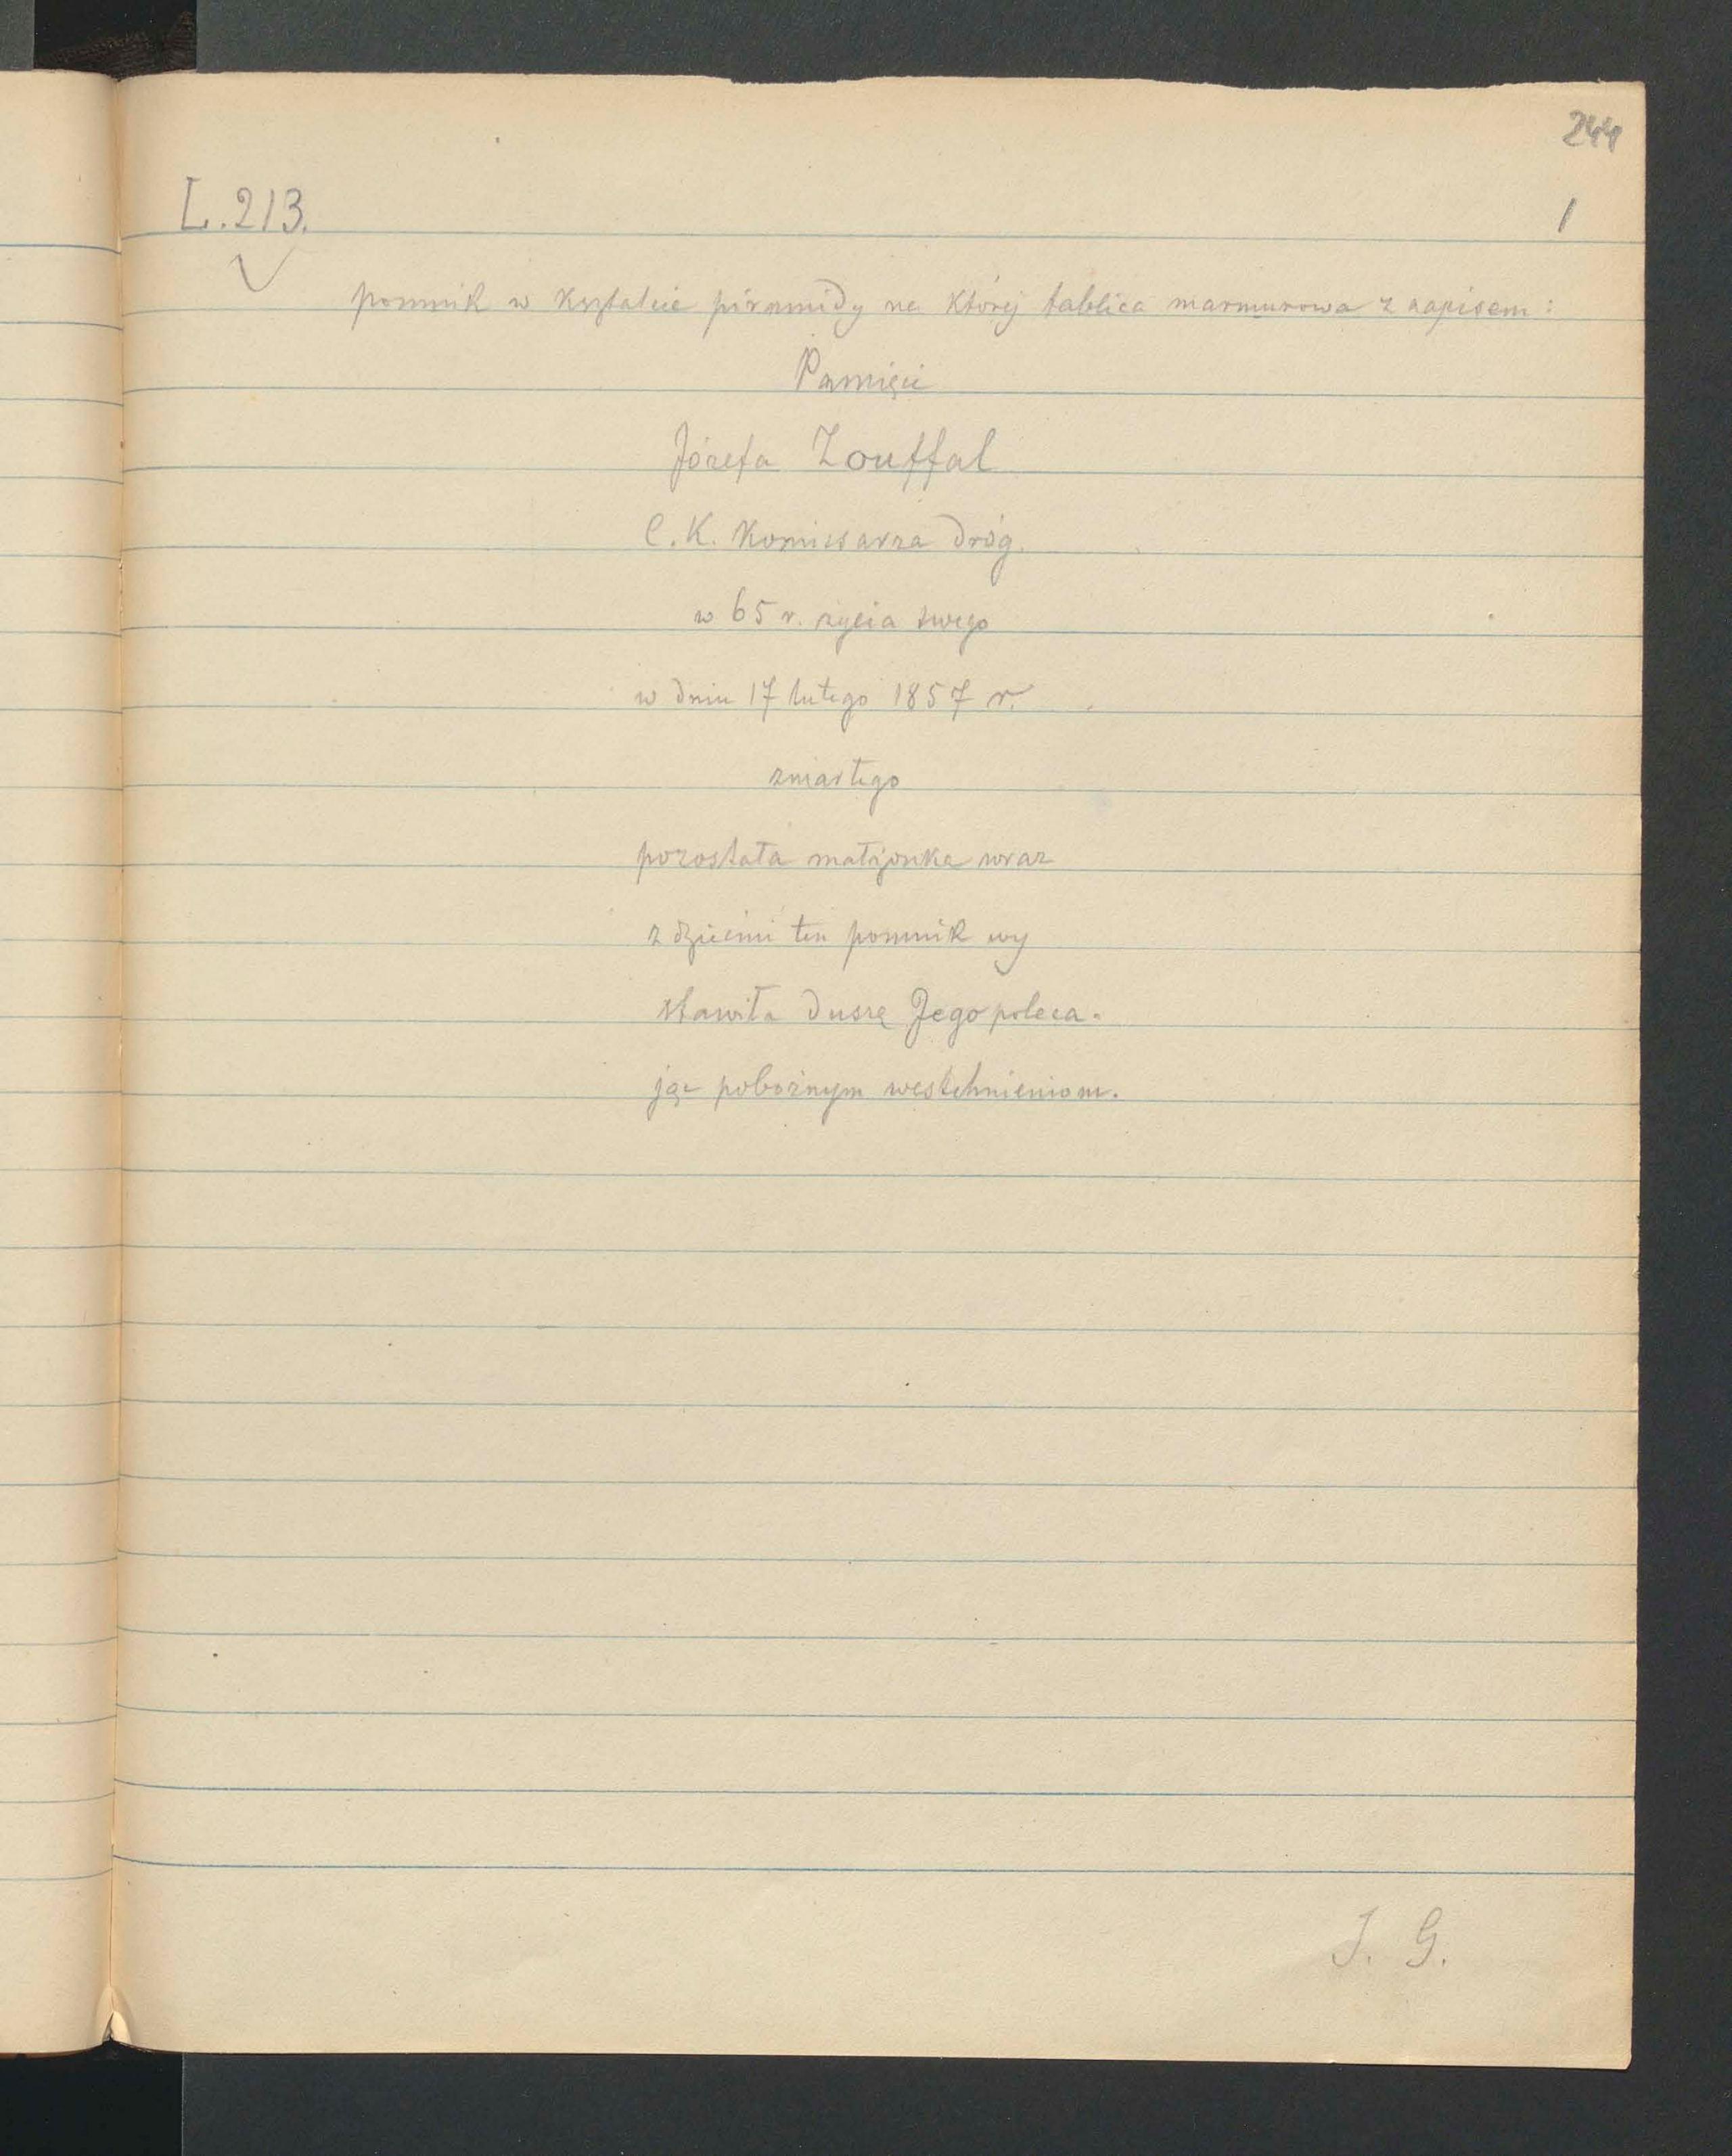 244
L. 213.
1
pomnik w kształcie piramidy na której tablica marmurowa z napisem:
Pamięci
Józefa Zouffal
C. K. Komissarza dróg.
w 65 r. życia swego
w dniu 17 lutego 1857 r.
zmarłego
pozostała małżonka wraz
z dziećmi ten pomnik wy
stawiła duszę Jego poleca-
jąc pobożnym westchnieniom.
J. G.